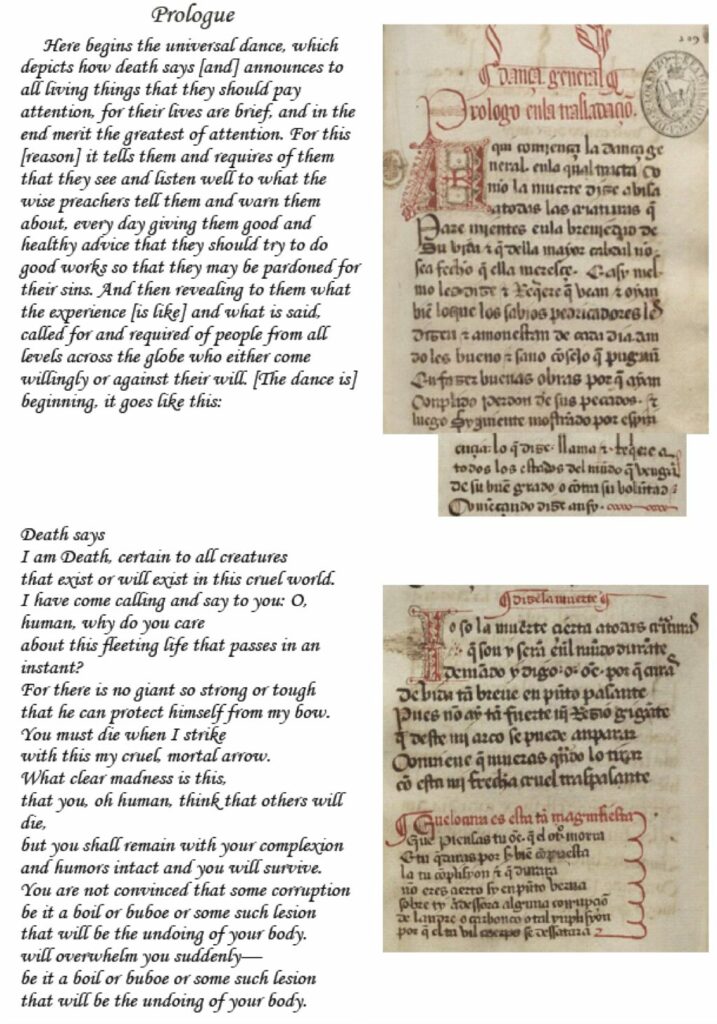 Prologue
Here begins the universal dance, which
depicts how death says [and] announces to
all living things that they should pay
attention, for their lives are brief, and in the
end merit the greatest of attention. For this
[reason] it tells them and requires of them
that they see and listen well to what the
wise preachers tell them and warn them
about, every day giving them good and
healthy advice that they should try to do
good works so that they may be pardoned for
their sins. And then revealing to them what
the experience [is like] and what is said,
called for and required of people from all
levels across the globe who either come
willingly or against their will. [The dance is]
beginning, it goes like this:
Death says
I am Death, certain to all creatures
that exist or will exist in this cruel world.
I have come calling and say to you: O,
human, why do you care
about this fleeting life that passes in an
instant?
For there is no giant so strong or tough
that he can protect himself from my bow.
You must die when I strike
with this my cruel, mortal arrow.
What clear madness is this,
that you, oh human, think that others will
die,
but you shall remain with your complexion
and humors intact and you will survive.
You are not convinced that some corruption
be it a boil or buboe or some such lesion
that will be the undoing of your body.
will overwhelm you suddenly—
be it a boil or buboe or some such lesion
that will be the undoing of your body.
dança general
Prologo enla trasladaçiõ
Aqui comiença la dança ge
neral enla qual tracta co
mo la muerte dize abisa
a todas las criaturas q̃
Pare mientes enla breuiedad de
Su vida & q̃ della mayor cabdal nõ
sea fecho q̃ ella meresçe. E asy mes
mo les dize & Req̃ere q̃ vean & oyan
biẽ lo que los sabios pedricadores les
dizen & amonestan de cada dia dan
do les bueno & sano cõsejo q̃ pugnen
En fazer buenas obras por q̃ ayan
Conplido perdon de sus pecados. &
luego Syguiente mostrando por espiri
ençia: lo q̃ dize. llama & req̃ere a
todos los estados del mũdo q̃ vengã
de su buẽ grado o cõtra su voluntad
Començando dize ansy.
dize la muerte
Yo so la muerte çierta a todas criaturas
q̃ son y serã enl mũdo durãte
demãdo y digo: o: oẽ. por q̃ curas
De vida tã breue en pũto pasante
Pues nõ ay tã fuerte nĩ Rezio gigãte
q̃ deste mi arco se puede anparar
Conuiene q̃ mueras qñdo lo tirar
cõ esta mi frecha cruel traspasante
Que locura es esta tã magnifiesta
Que piensas tu oẽ. q̃ el otro morira
E tu q̃daras por ser biẽ cõpuesta
la tu cõplisyon & q̃ durara
nõ eres çierto sy en pũto verna
sobre ty a dessora alguna corrupçiõ
de landre o carbonco o tal ynplisyõn
por q̃ el tu vil cuerpo se dessatara